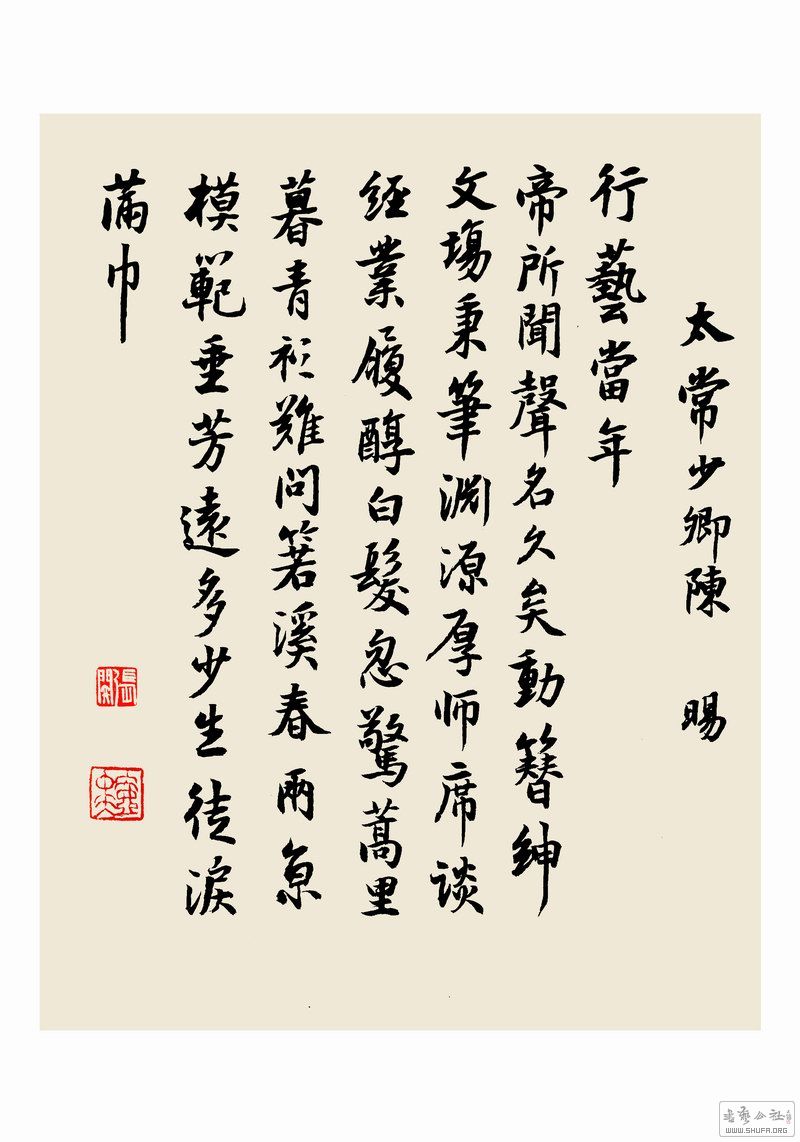 太常少卿陳賜
行藝當年
帝所聞聲名久矣動簪紳
文塲秉筆淵源厚师席谈
經業履醇白髮忽驚蒿里
暮青衫難问箬溪春兩京
模範垂芳遠多少生徒淚
满巾
書藝公社
WWW.SHUFA.ORG